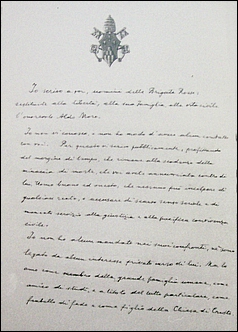 Io scrivo a voi, uomini delle Brigate Rosse:
restituite alla libertà, alla sua famiglia, alla vita civile
l'onorevole Aldo Moro.
Io non vi conosco, e non ho modo d'avere alcun contatto
con voi. Per questo vi scrivo pubblicamente, profittando
del margine di tempo, che rimane alla scadenza della
minaccia di morte, che voi avete annunciata contro di
lui, Uomo buono ed onesto, che nessuno può incolpare di
qualsiasi reato, o accusare di scarso senso sociale e di
mancato servizio alla giustizia e alla pacifica convivenza
civile.
Io non ho alcun mandato nei suoi confronti, né sono
legato da alcun interesse privato verso di lui. Ma lo
amo come membro della grande famiglia umana, come
amico di studi, e a titolo del tutto particolare, come
fratello di fede e come figlio della Chiesa di Cristo